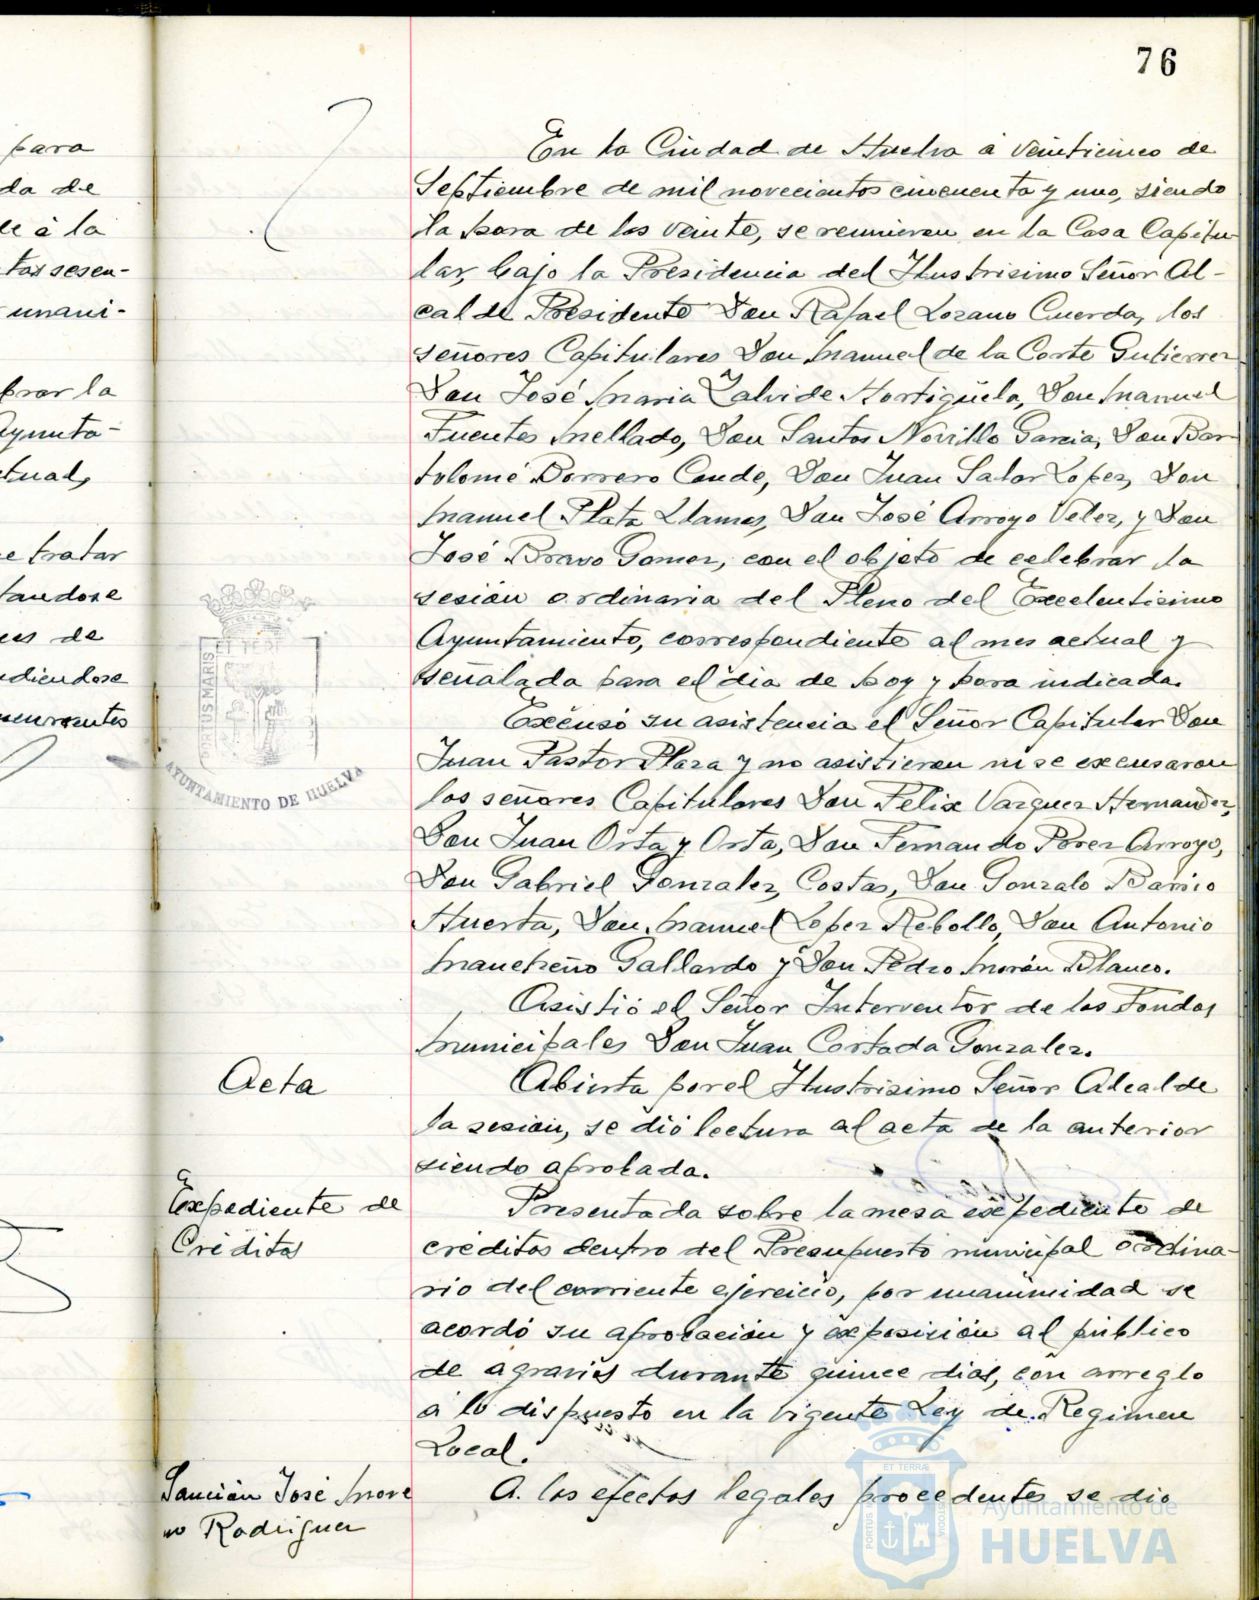 76
para
da de
de á la
tas sesen-
unani-
brar la
Ayunta-
ctual,
e tratar
tandose
ces de
ndiendose
ncurrentes
En la Ciudad de Huelva á veinticinco de
Septiembre de mil novecientos cincuenta y uno, siendo
la hora de las veinte, se reunieron en la Casa Capitu-
lar, bajo la Presidencia del Ilustrisimo Señor Al-
calde Presidente Don Rafael Lozano Cuerda, los
señores Capitulares Don Manuel de la Corte Gutierrez
Don José Maria Zalvide Hortigüela, Don Manuel
Fuentes Mellado, Don Santos Novillo Garcia, Don Bar-
tolomé Borrero Conde, Don Juan Salar Lopez, Don
Manuel Plata Llamas, Don José Arroyo Velez, y Don
José Bravo Gomez, con el objeto de celebrar la
sesión ordinaria del Pleno del Excelentisimo
Ayuntamiento, correspondiente al mes actual y
señalada para el dia de hoy y hora indicada.
Excusó su asistencia el Señor Capitular Don
Juan Pastor Plaza y no asistieron ni se excusaron
los señores Capitulares Don Felix Vazquez Hernandez,
Don Juan Orta y Orta, Don Fernando Perez Arroyo,
Don Gabriel Gonzalez Costas, Don Gonzalo Barrio
Huerta, Don Manuel Lopez Rebollo, Don Antonio
Mancheño Gallardo y Don Pedro Morón Blanco.
Asistió el Señor Interventor de los Fondos
Municipales Don Juan Cortada Gonzalez.
Acta
Abierta por el Ilustrisimo Señor Alcalde
la sesión, se dió lectura al acta de la anterior
siendo aprobada.
Expediente de
Créditos
Presentada sobre la mesa expediente de
créditos dentro del Presupuesto municipal ordina-
rio del corriente ejercicio, por unanimidad se
acordó su aprobación y exposición al público
de agravios durante quince dias, con arreglo
á lo dispuesto en la vigente Ley de Regimen
Local.
Sanción José More
no Rodriguez
A los efectos legales procedentes se dio
PORTUS MARIS
ET TERR
AYUNTAMIENTO DE HUELVA
ET TERRÆ
PORTUS
CUSTODIA
Ayuntamiento de
HUELVA